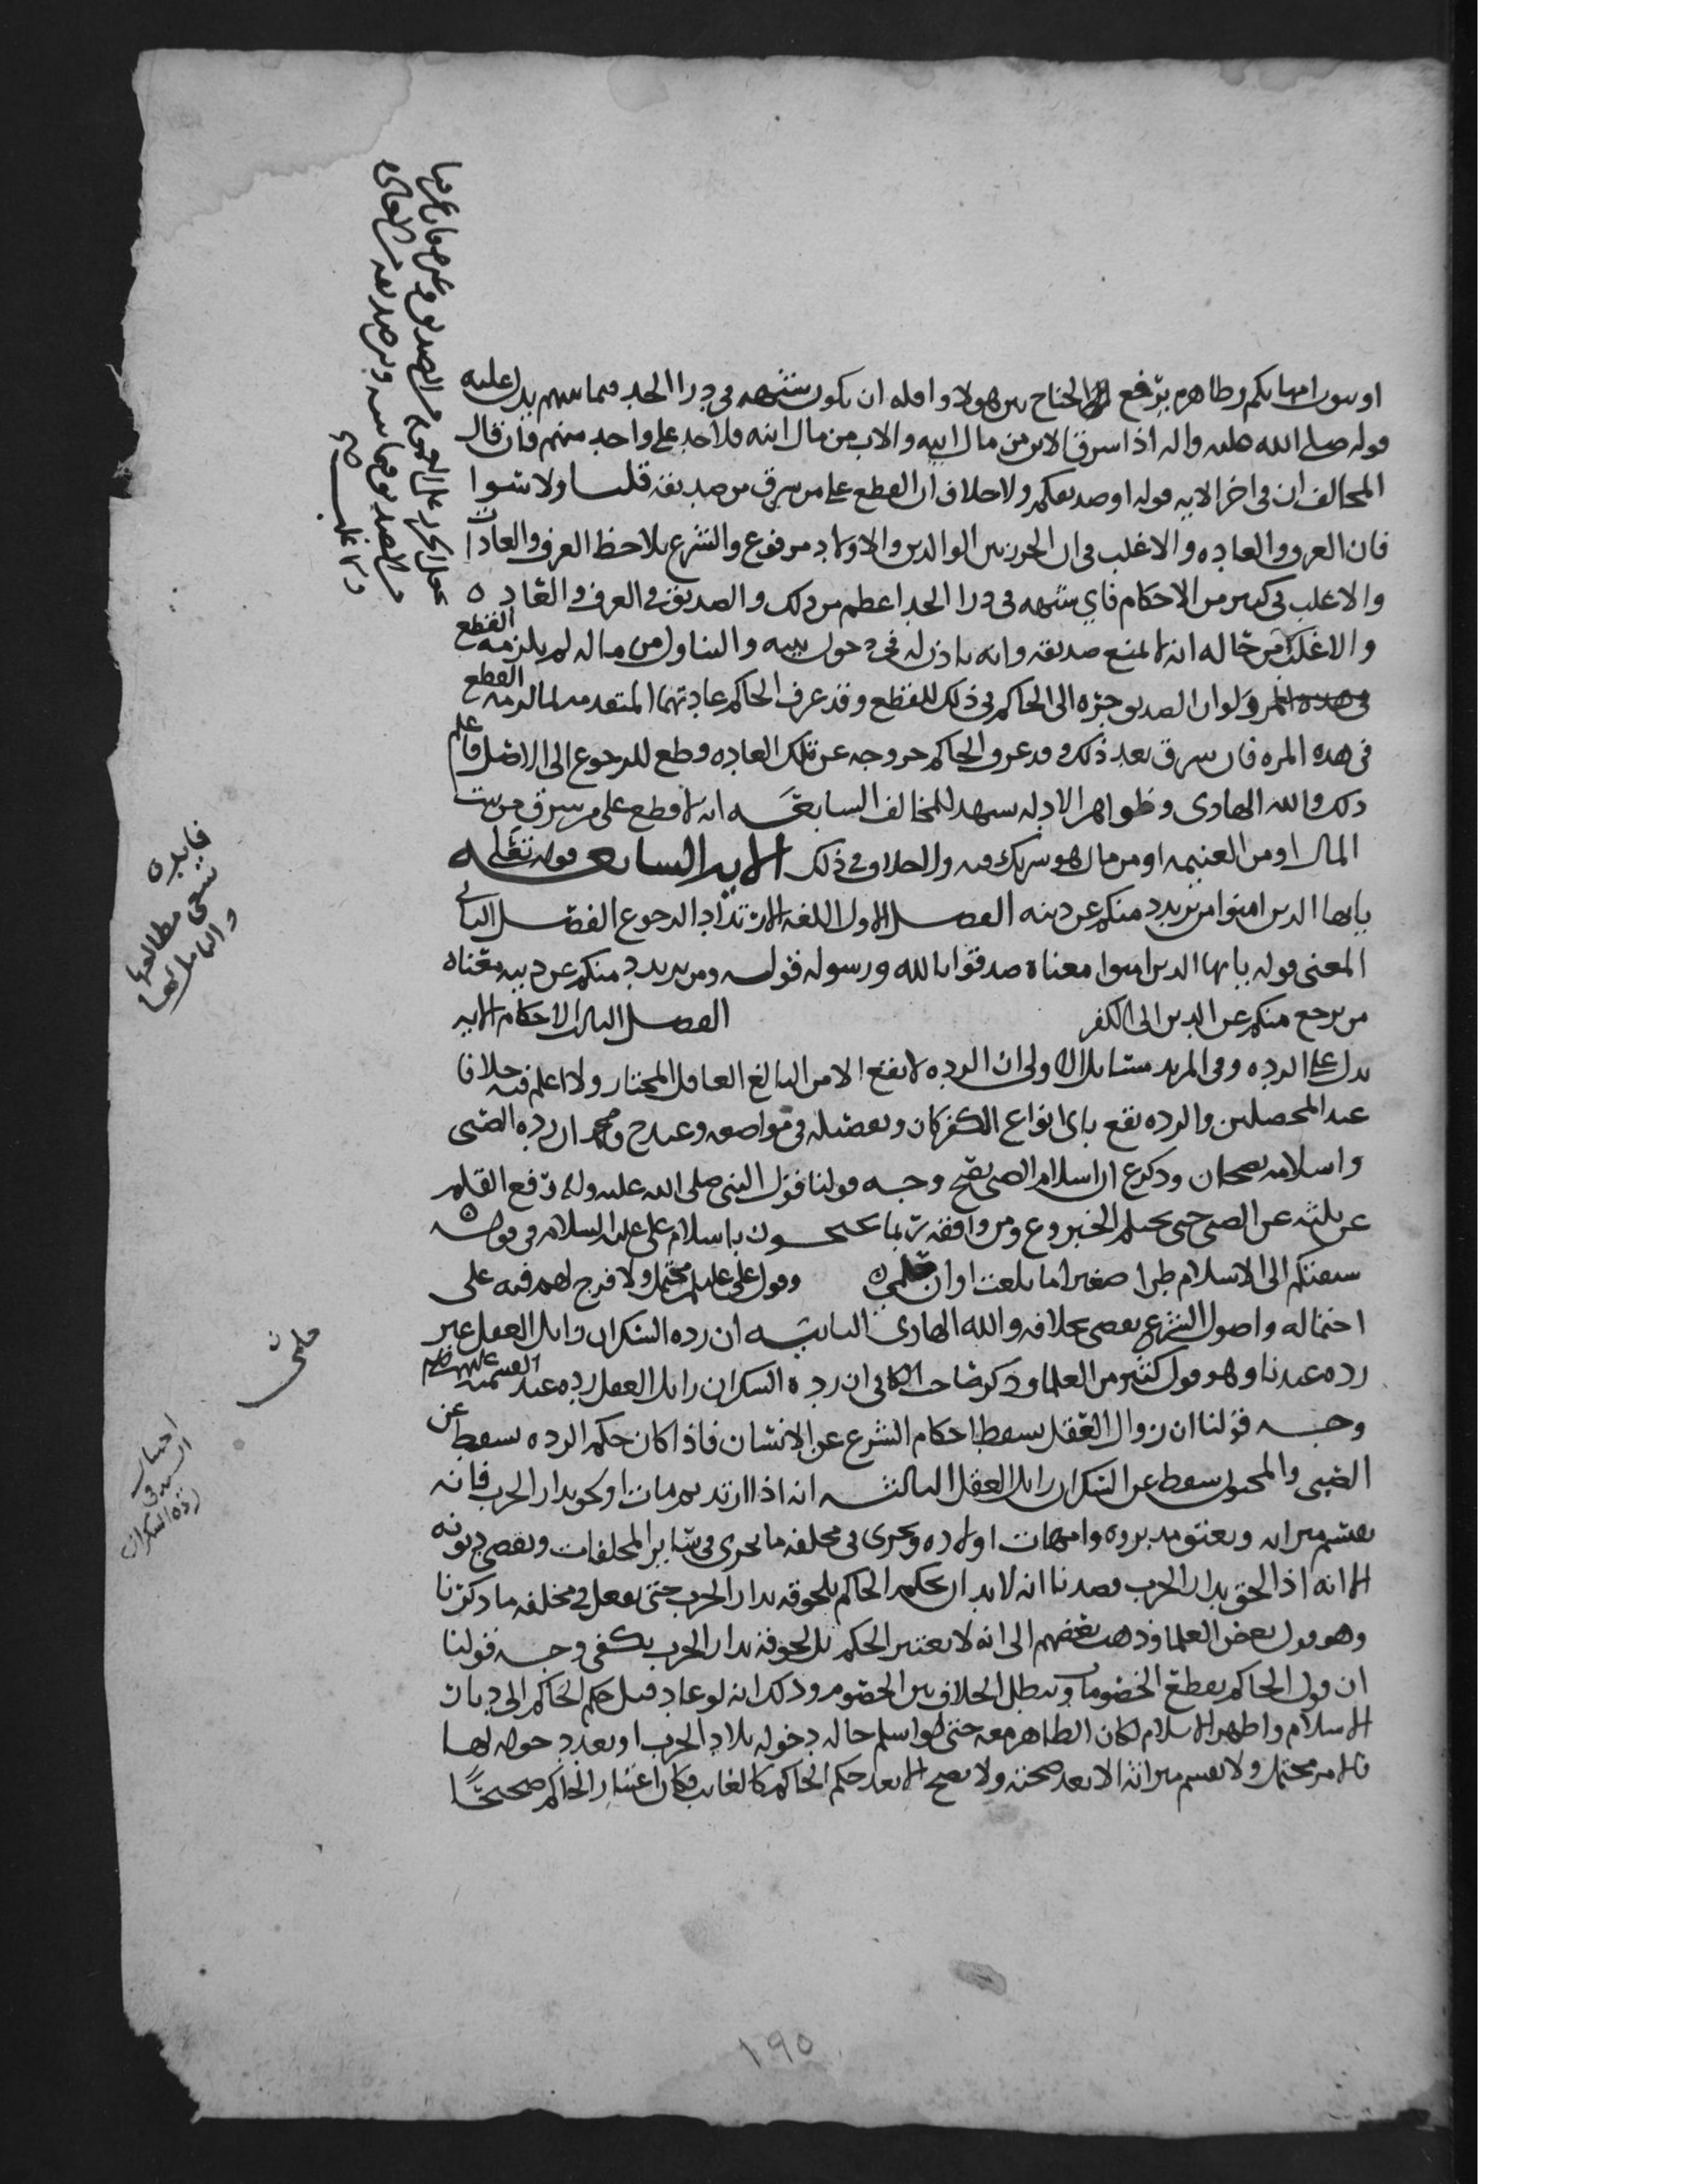 او بيوت امهاتكم وظاهره يرفع الجناح بين هولا واقله ان يكون شبهه في درا الحد فيما بينهم يدل عليه
قوله صلى الله عليه واله اذا سرق الابن من مال ابيه والاب من مال ابنه فلا حد على واحد منهم فان قال
المخالف ان في اخر الايه قوله او صديقكم ولا خلاف ان القطع على من سرق من صديقه قلنا ولا سوا
فان العرف والعاده والاغلب في ان الحرز بين الوالدين والاولاد مرفوع والشرع يلاحظ العرف والعادات
والاغلب في كثير من الاحكام فاي شبهه في درا الحد اعظم من ذلك والصديق في العرف والعاده
والاغلب من حاله انه لا يمنع صديقه وانه ياذن له في دخول بيته والتناول من ماله لم يلزمه القطع
ولو ان الصديق جره الى الحاكم في ذلك للقطع وقد عرف الحاكم عادتهما المتقدمه لما لزمه القطع
في هذه المره فان سرق بعد ذلك وقد عرف الحاكم خروجه عن تلك العاده قطع للرجوع الى الاصل فاعلم
ذلك والله الهادي وظواهر الادله يشهد للمخالف السابعه انه لا قطع على من سرق من بيت
المال او من الغنيمه او من مال هو شريك فيه ولا خلاف في ذلك الايه السابعه قوله تعالى
يايها الذين امنوا من يرتدد منكم عن دينه الفصل الاول اللغه الارتداد الرجوع الفصل الثاني
المعنى قوله يايها الذين امنوا معناه صدقوا بالله ورسوله قوله ومن يرتدد منكم عن دينه معناه
من يرجع منكم عن الدين الى الكفر الفصل الثالث الاحكام الايه
تدل على الرده وفي المرتد مسايل الاولى ان الرده لا تقع الا من البالغ العاقل المختار ولا اعلم فيه خلافا
عند المحصلين والرده تقع باي انواع الكفر كان وتفصيله في مواضعه وعند ح ومحمد ان رده الصبي
واسلامه يصحان وذكر ع ان اسلام الصبي يصح وجه قولنا قول النبي صلى الله عليه واله رفع القلم
عن ثلثه عن الصبي حتى يحتلم الخبر وع ومن وافقه ربما يحتجون باسلام علي عليه السلام في قوله
سبقتكم الى الاسلام طرا صغيرا ما بلغت اوان حلمي وقول علي عليلم محتمل ولا فرج لهم فيه على
احتماله واصول الشرع يقضي بخلافه والله الهادي الثانيه ان رده السكران زايل العقل غير
رده عندنا وهو قول كثير من العلما وذكر صاحب الكافي ان رده السكران زايل العقل رده عند القسميه
وجه قولنا ان زوال العقل يسقط احكام الشرع عن الانسان فاذا كان حكم الرده يسقط عن
الصبي والمجنون سقط عن السكران زايل العقل الثالثه انه اذا ارتد ثم مات او لحق بدار الحرب فانه
يقسم ميراثه ويعتق مدبروه وامهات اولاده ويجري في مخلفه ما يجري في ساير المخلفات ويقضي ديونه
الا انه اذا لحق بدار الحرب فعندنا انه لا بد ان يحكم الحاكم بلحوقه بدار الحرب حتى يفعل في مخلفه ما ذكرنا
وهو قول بعض العلما وذهب بعضهم الى انه لا يعتبر الحكم بل لحوقه بدار الحرب يكفي وجه قولنا
ان قول الحاكم يقطع الخصومات ويبطل الخلاف بين الخصوم وذلك انه لو عاد قبل حكم الحاكم الى ديات
الاسلام واظهر الاسلام لكان الظاهر معه حتى لو اسلم حاله دخوله بلاد الحرب او بعد دخوله لها
فالامر محتمل ولا يقسم ميراثه الا بعد صحته ولا يصح الا بعد حكم الحاكم كالغايب فكان اعتبار الحاكم صحيحا
فايده
ينبغي مطالعتها
والتامل لها
حلمي
السيد في
رده السكران
١٩٥